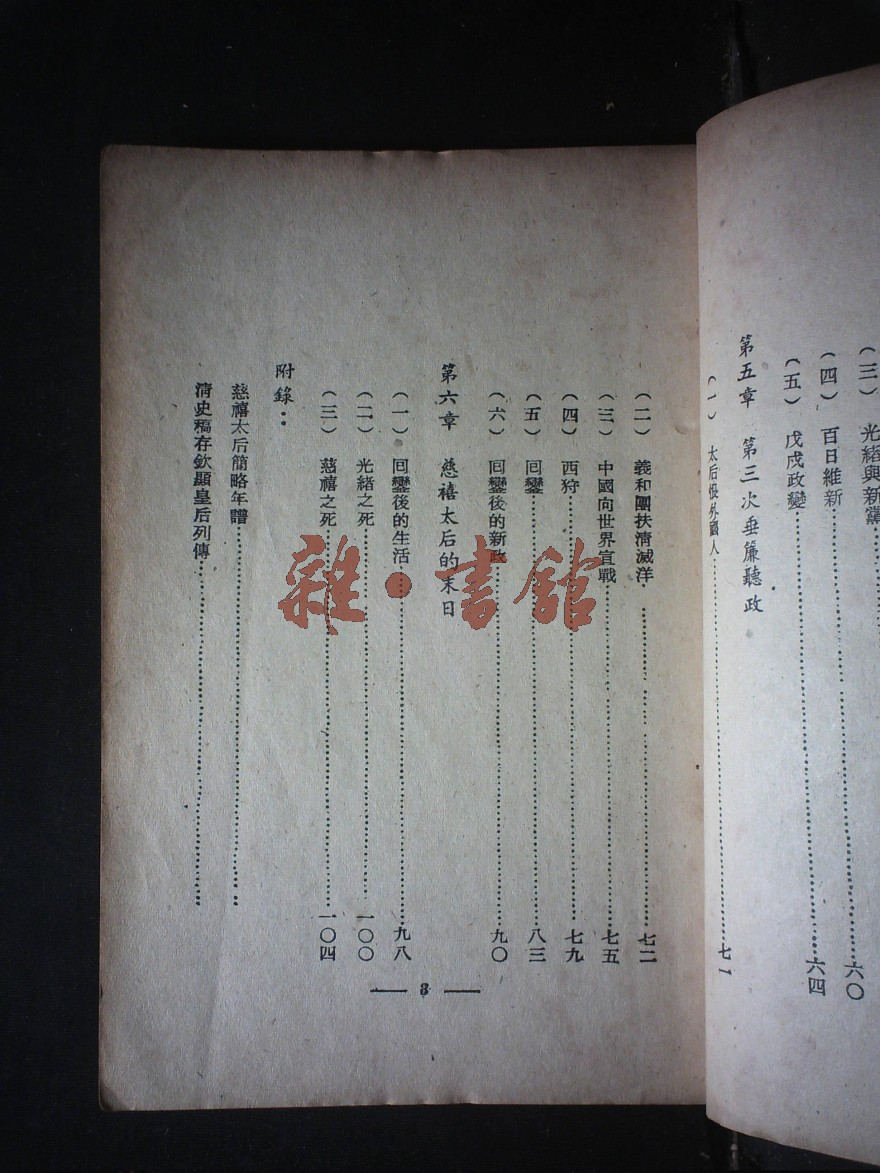 (三) 光緒與新黨……六〇
(四) 百日維新
(五) 戊戌政變……六四
第五章 第三次垂簾聽政
(一) 太后恨外國人……七一
(二) 義和團扶清滅洋……七二
(三) 中國向世界宣戰……七五
(四) 西狩……七九
(五) 回鑾……八三
(六) 回鑾後的新政……九〇
第六章 慈禧太后的末日
(一) 回鑾後的生活……九八
(二) 光緒之死……一〇〇
(三) 慈禧之死……一〇四
附錄：
慈禧太后簡略年譜……
清史稿孝欽顯皇后列傳……
— 3 —
雜·書館